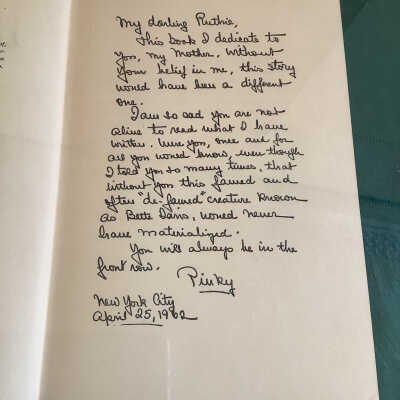 My darling Ruthie,
This book I dedicate to
you, my Mother. Without
your belief in me, this story
would have been a different
one.
I am so sad you are not
alive to read what I have
written. Here you, once and for
all you would know, even though
I told you so many times, that
without you this famed and
often "de-famed" creature known
as Bette Davis, would never
have materialized.
You will always be in the
front row.
Pinky
New York City
April 25, 1962